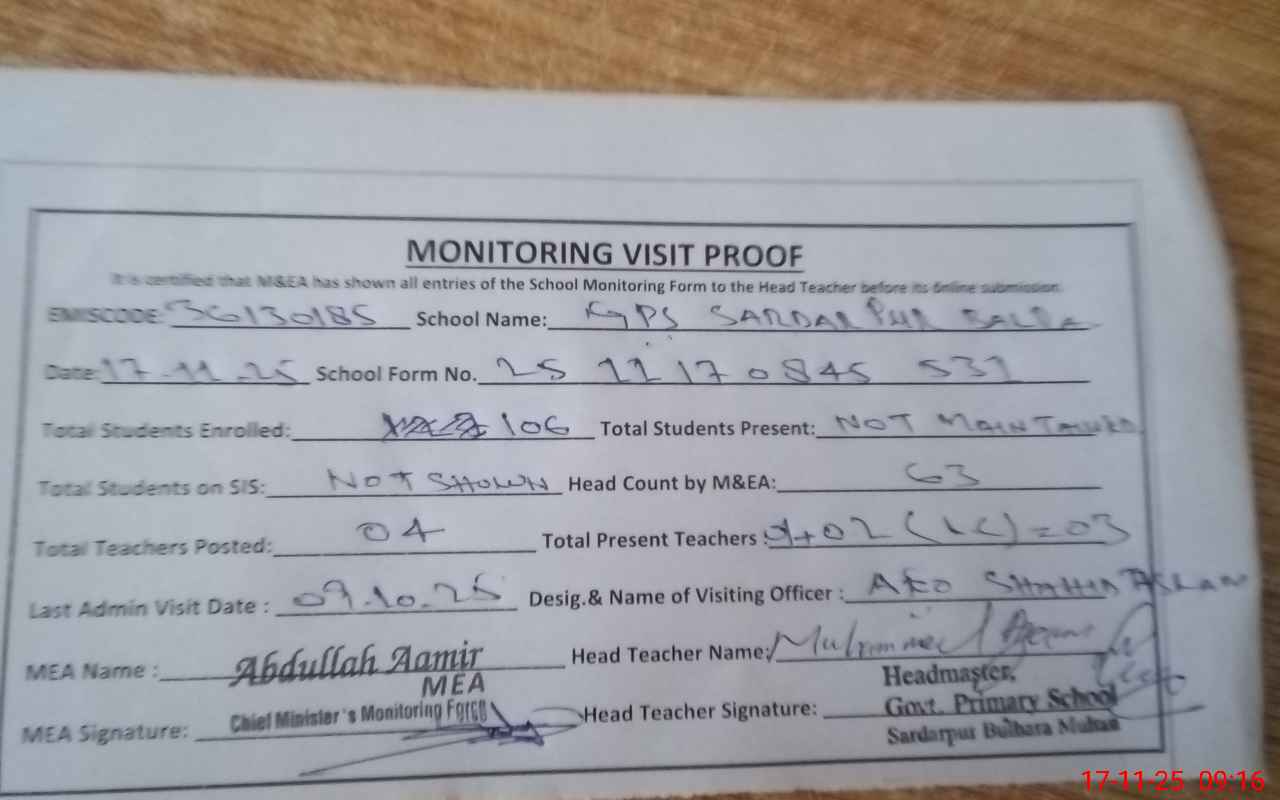 MONITORING VISIT PROOF
It is certified that M&EA has shown all entries of the School Monitoring Form to the Head Teacher before its online submission.
EMISCODE: 36130185 School Name: GPS SARDAR PUR
Date: 17-11-25 School Form No. 25 11 17 0845 531
Total Students Enrolled: 106 Total Students Present: NOT MAINTAINED
Total Students on SIS: NOT SHOWN Head Count by M&EA: 63
Total Teachers Posted: 04 Total Present Teachers : 1+02 ( ) = 03
Last Admin Visit Date : 09.10.25 Desig.& Name of Visiting Officer : AEO
MEA Name : Abdullah Aamir Head Teacher Name:
MEA
Chief Minister's Monitoring Force
MEA Signature: Head Teacher Signature:
Headmaster,
Govt. Primary School
Sardarpur
17-11-25 09:16